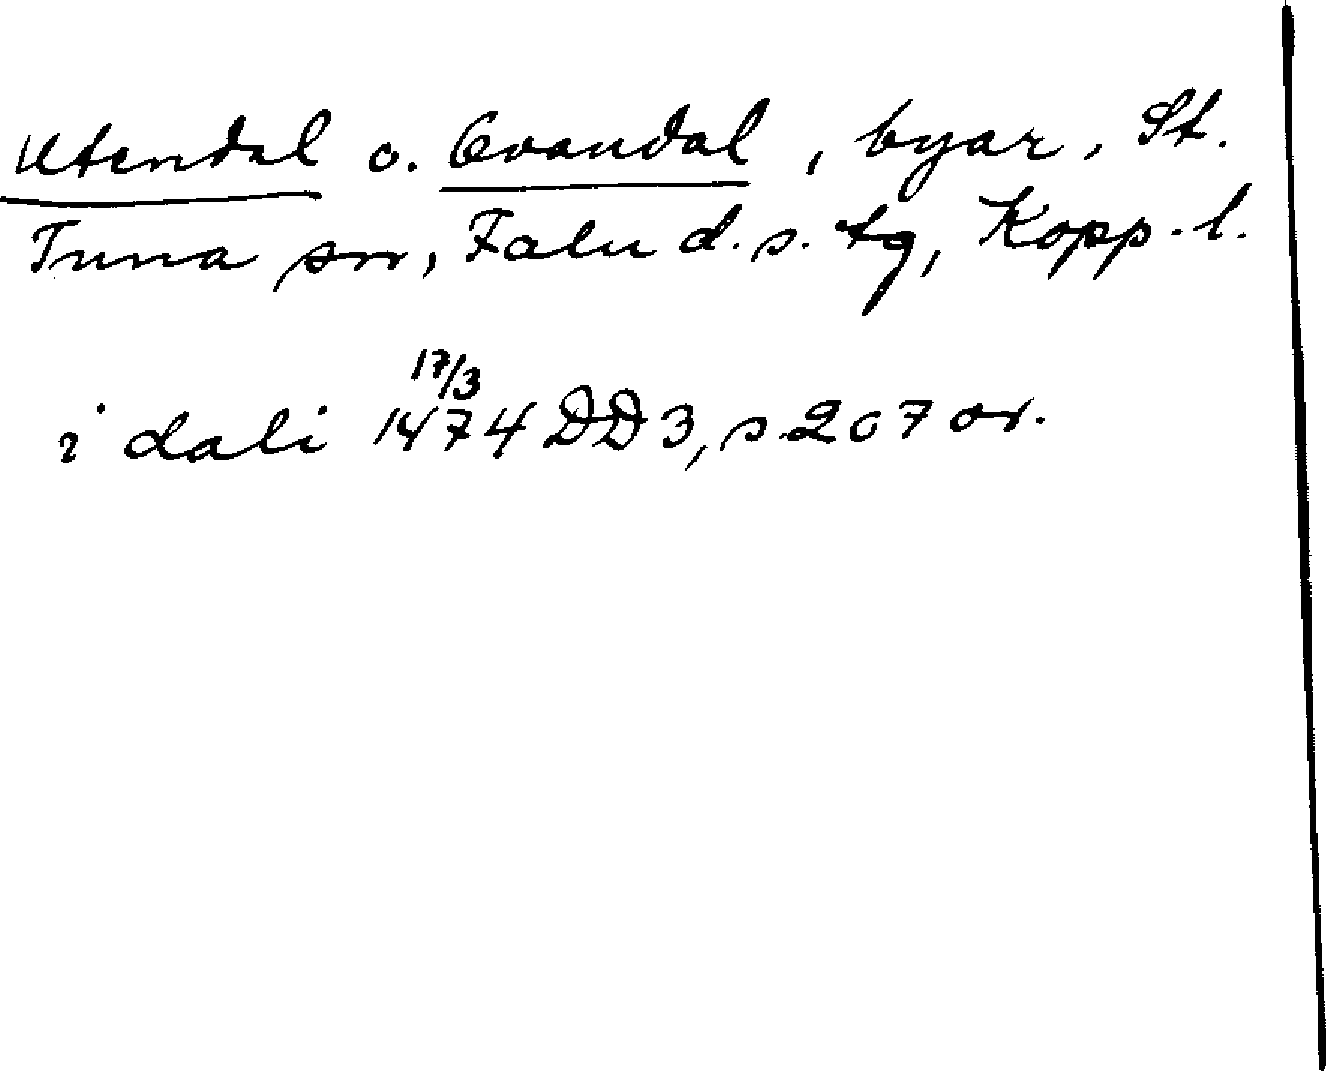 Utendal o. Ovandal, byar, St.
Tuna sn, Falu d.s. tg, Kopp. l.
i dali 17/3 1474 DD 3, s. 207 or.